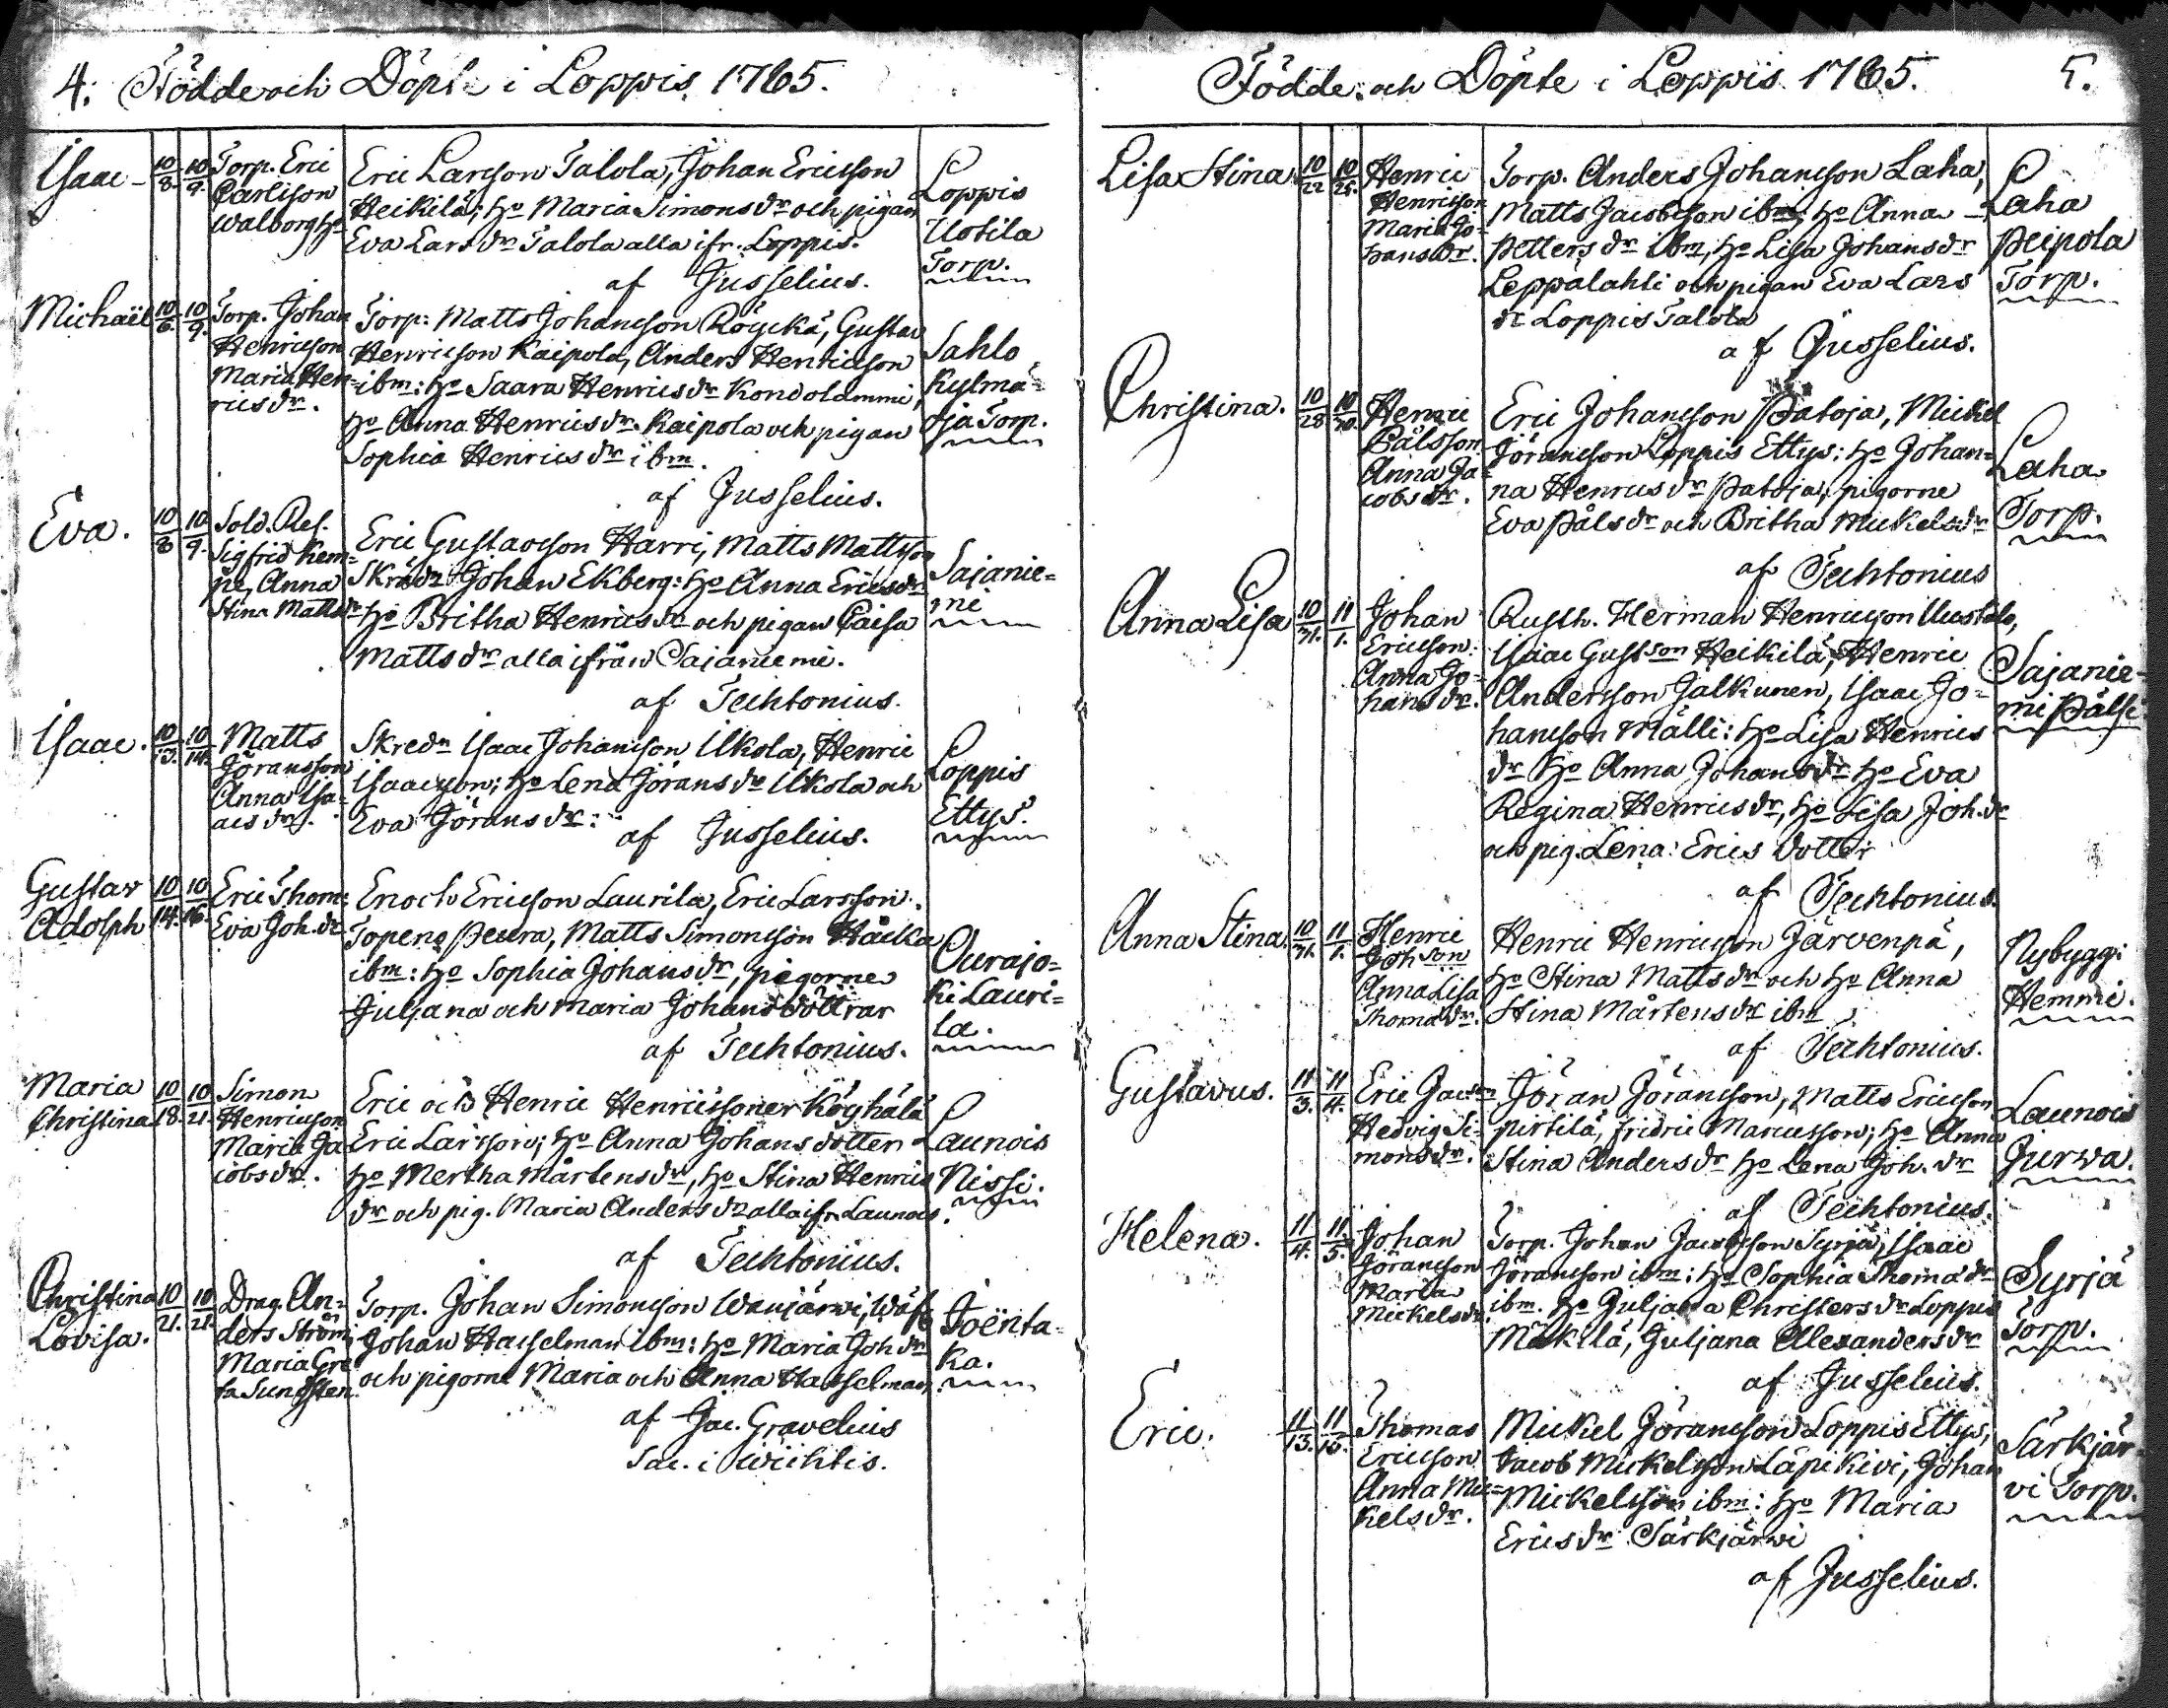 4. Födde och Döpte i Loppis 1765.
Isaac - 10/8. 10/9. Torp. Eric Carlsson Walborg Ho
Eric Larsson Talola, Johan Ericsson
Heikilä; Ho Maria Simons dr och pigan
Eva Lars dr Talola alla ifr. Loppis.
af Jusselius.
Loppis
Uotila
Torp.
Michaël 10/6. 10/9. Torp. Johan Henricsson Maria Hen=rics dr.
Torp: Matts Johansson Röyckä, Gustav
Henricsson Kaipola, Anders Henricsson
ibm: Ho Saara Henrics dr Kondolammi,
Ho Anna Henrics dr Kaipola och pigan
Sophia Henrics dr ibm.
af Jusselius.
Sahlo
Kylmä=
oja Torp.
Eva. 10/8 10/9. Sold. Ref. Sigfrid Kem=pe, Anna Stina Matts dr
Eric Gustavsson Harri, Matts Mattsson
Skrädr Johan Ekberg: Ho Anna Erics dr
Ho Britha Henrics dr och pigan Caisa
Matts dr alla ifrån Sajaniemi.
af Techtonius.
Sajanie=
mi
Isaac. 10/13. 10/14. Matts Göransson Anna Isa=acs dr.
Skredr Isaac Johansson Ilkola, Henric
Isaacsson; Ho Lena Görans dr Ilkola och
Eva Görans dr:
af Jusselius.
Loppis
Ettys.
Gustav Adolph 10/14. 10/16. Eric Thom: Eva Joh. dr
Enoch Ericsson Laurila, Eric Larsson
Topeno Peura, Matts Simonsson Häcka
ibm: Ho Sophia Johans dr, pigorne
Juljana och Maria Johansdöttrar
af Techtonius.
Ourajo=
ki Lauri=
la.
Maria Christina 10/18. 10/21. Simon Henricsson Maria Ja cobs dr.
Eric och Henric Henricssoner Köyhälä
Eric Larsson; Ho Anna Johans dotter
Ho Mertha Mårtens dr, Ho Stina Henrics
dr och pig. Maria Anders dr alla ifr. Launois.
af Techtonius.
Launois
Nissi.
Christina Lovisa. 10/21. 10/21. Drag. An=ders Ström Maria Gre ta Sundsten
Torp. Johan Simonsson Wanjärwi, Wäfv
Johan Hasselman ibm: Ho Maria Joh dr
och pigorne Maria och Anna Hasselman.
af Jac. Gravelius
Sac. i Wichtis.
Toënta=
ka.
Födde och Döpte i Loppis 1765. 5.
Lisa Stina 10/22 10/25. Henric Henricsson Maria Jo=hans dr.
Torp. Anders Johansson Laha,
Matts Jacobsson ibm; Ho Anna
Petters dr ibm, Ho Lisa Johans dr
Leppälahti och pigan Eva Lars
dr Loppis Talola
af Jusselius.
Laha
Peipola
Torp.
Christina. 10/28 10/30. Henric Pålsson Anna Ja=cobs dr.
Eric Johansson Patoja, Mickel
Göransson Loppis Ettys: Ho Johan=
na Henrics dr Patoja, pigorne
Eva Påls dr och Britha Mickels dr
af Techtonius
Laha
Torp.
Anna Lisa 10/31. 11/1. Johan Ericsson: Anna Jo=hans dr.
Rusth. Herman Henricsson Uustalo,
Isaac Gust son Heikilä, Henric
Andersson Jalkunen, Isaac Jo=
hansson Mälli: Ho Lisa Henrics
dr Ho Anna Johans dr Ho Eva
Regina Henrics dr, Ho Lisa Joh. dr
och pig. Lena: Erics dotter
af Techtonius.
Sajanie=
mi Pälsi
Anna Stina. 10/31. 11/1. Henric Joh son Anna Lisa Thoma dr.
Henric Henricsson Järvenpä,
Ho Stina Matts dr och Ho Anna
Stina Mårtens dr ibm
af Techtonius.
Nybygg:
Hemmi.
Gustavus. 11/3. 11/4. Eric Jacson Hedvig Si=mons dr.
Göran Göransson, Matts Ericsson
pirtilä, fridric Marcusson; Ho Anna
Stina Anders dr Ho Lena Joh. dr
af Techtonius.
Launois
Jurwa.
Helena. 11/4. 11/5. Johan Göransson Maria Mickels dr
Torp. Johan Jacobsson Syrjä, Isaac
Göransson ibm: Ho Sophia Thoma dr
ibm. Ho Juljana Christers dr Loppis
Mäkilä, Juljana Alexanders dr
af Jusselius.
Syrjä
Torp.
Eric. 11/13. Thomas Ericsson Anna Mic=kels dr.
Mickel Göransson Loppis Ettys,
Jacob Mickelsson Läpikivi, Johan
Mickelsson ibm: Ho Maria
Erics dr Särkjärwi
af Jusselius.
Särkjär=
vi Torp.